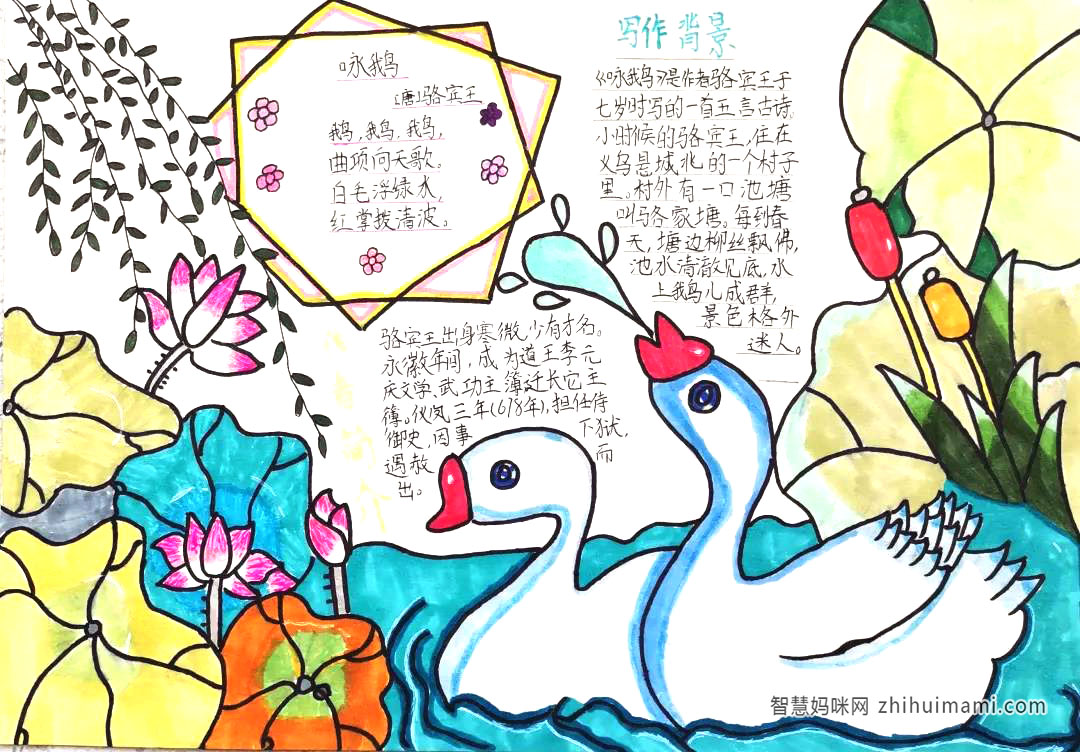 咏鹅
[唐]骆宾王
鹅,鹅,鹅,
曲项向天歌。
白毛浮绿水,
红掌拨清波。
写作背景
《咏鹅》是作者骆宾王于
七岁时写的一首五言古诗。
小时候的骆宾王,住在
义乌县城北的一个村子
里。村外有一口池塘
叫骆家塘。每到春
天,塘边柳丝飘拂,
池水清澈见底,水
上鹅儿成群,
景色格外
迷人。
骆宾王出身寒微,少有才名。
永徽年间,成为道王李元
庆文学、武功主簿迁长
主
簿。仪凤三年(678年),担任侍
御史,因事下狱,
遇赦而
出。
智慧妈咪网 zhihuimami.com